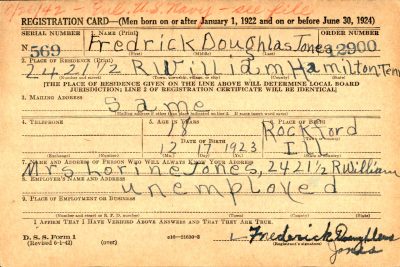 REGISTRATION CARD—(Men born on or after January 1, 1922 and on or before June 30, 1924)
SERIAL NUMBER 1. NAME (Print) ORDER NUMBER
N 569 Fredrick Doughlas Jones 12900
(First) (Middle) (Last)
2. PLACE OF RESIDENCE (Print)
2421 1/2 R William Hamilton Tenn
(Number and street) (Town, township, village, or city) (County) (State)
[THE PLACE OF RESIDENCE GIVEN ON THE LINE ABOVE WILL DETERMINE LOCAL BOARD
JURISDICTION; LINE 2 OF REGISTRATION CERTIFICATE WILL BE IDENTICAL]
3. MAILING ADDRESS
Same
[Mailing address if other than place indicated on line 2. If same insert word same]
4. TELEPHONE 5. AGE IN YEARS 6. PLACE OF BIRTH
18 Rockford
DATE OF BIRTH (Town or county)
12 17 1923 Ill
(Exchange) (Number) (Mo.) (Day) (Yr.) (State or country)
7. NAME AND ADDRESS OF PERSON WHO WILL ALWAYS KNOW YOUR ADDRESS
Mrs Lorine Jones, 2421 1/2 R William
8. EMPLOYER'S NAME AND ADDRESS
unemployed
9. PLACE OF EMPLOYMENT OR BUSINESS
(Number and street or R. F. D. number) (Town) (County) (State)
I AFFIRM THAT I HAVE VERIFIED ABOVE ANSWERS AND THAT THEY ARE TRUE.
D. S. S. Form 1 Frederick Doughlas
(Revised 6-1-42) (over) Jones
(Registrant's signature)